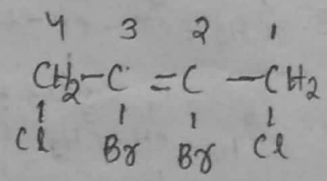 4 3 2 1
CH2-C=C-CH2
Cl Br Br Cl